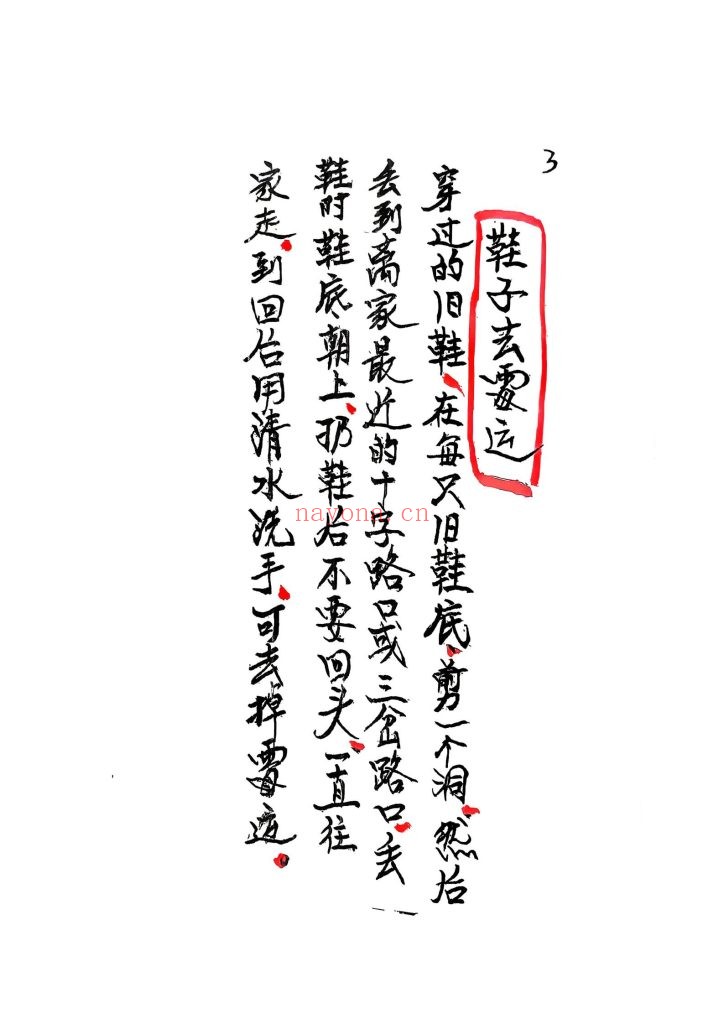 3
鞋子去霉运
穿过的旧鞋、在每只旧鞋底、剪一个洞、然后
丢到离家最近的十字路口或三岔路口、丢
鞋时鞋底朝上、扔鞋后不要回头、一直往
家走、到回后用清水洗手、可去掉霉运。
nayona.cn